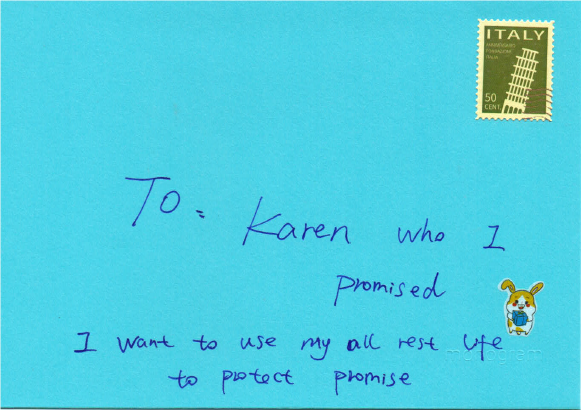 ITALY
50
CENT.
To:
Karen who I
promised
I want to use my all rest life
to protect promise